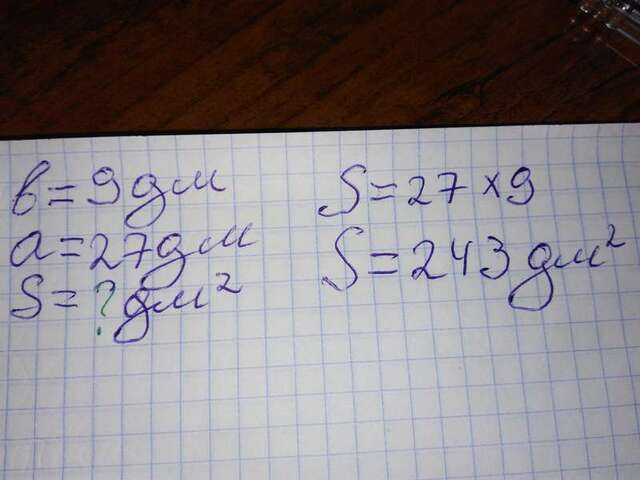 в=9дм
а=27дм
S=?дм²
S=27×9
S=243дм²